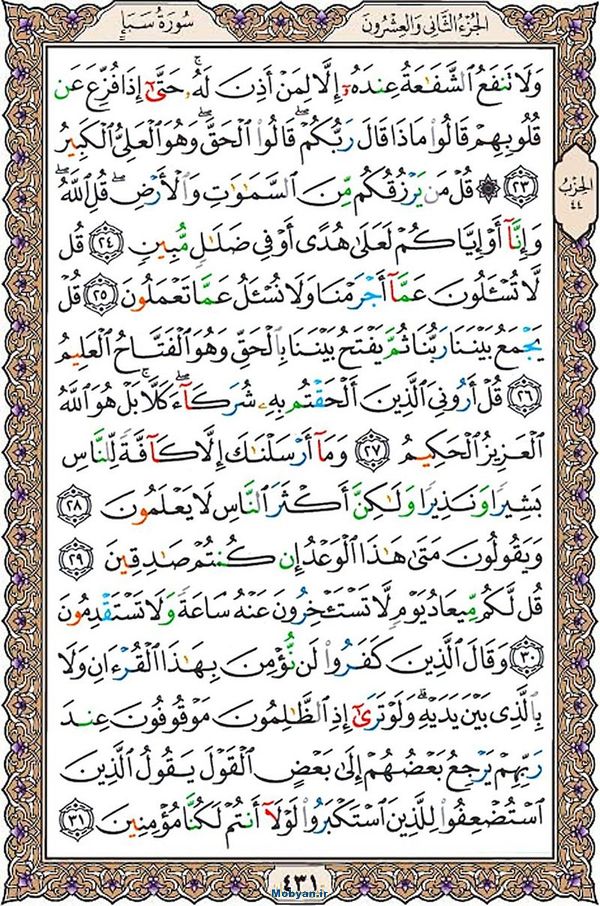 الجُزءُ الثَّانِي وَالعِشرُونَ
سُورَةُ سَبَإٍ
وَلَا تَنفَعُ الشَّفَاعَةُ عِندَهُ إِلَّا لِمَنْ أَذِنَ لَهُ حَتَّىٰ إِذَا فُزِّعَ عَن
قُلُوبِهِمْ قَالُوا مَاذَا قَالَ رَبُّكُمْ قَالُوا الْحَقَّ وَهُوَ الْعَلِيُّ الْكَبِيرُ
٢٣ ۞ قُلْ مَن يَرْزُقُكُم مِّنَ السَّمَاوَاتِ وَالْأَرْضِ قُلِ اللَّهُ
وَإِنَّا أَوْ إِيَّاكُمْ لَعَلَىٰ هُدًى أَوْ فِي ضَلَالٍ مُّبِينٍ ٢٤ قُل
لَّا تُسْـَٔلُونَ عَمَّا أَجْرَمْنَا وَلَا نُسْـَٔلُ عَمَّا تَعْمَلُونَ ٢٥ قُلْ
يَجْمَعُ بَيْنَنَا رَبُّنَا ثُمَّ يَفْتَحُ بَيْنَنَا بِالْحَقِّ وَهُوَ الْفَتَّاحُ الْعَلِيمُ
٢٦ قُلْ أَرُونِيَ الَّذِينَ أَلْحَقْتُم بِهِ شُرَكَاءَ كَلَّا بَلْ هُوَ اللَّهُ
الْعَزِيزُ الْحَكِيمُ ٢٧ وَمَا أَرْسَلْنَاكَ إِلَّا كَافَّةً لِّلنَّاسِ
بَشِيرًا وَنَذِيرًا وَلَٰكِنَّ أَكْثَرَ النَّاسِ لَا يَعْلَمُونَ ٢٨
وَيَقُولُونَ مَتَىٰ هَٰذَا الْوَعْدُ إِن كُنتُمْ صَادِقِينَ ٢٩
قُل لَّكُم مِّيعَادُ يَوْمٍ لَّا تَسْتَـْٔخِرُونَ عَنْهُ سَاعَةً وَلَا تَسْتَقْدِمُونَ
٣٠ وَقَالَ الَّذِينَ كَفَرُوا لَن نُّؤْمِنَ بِهَٰذَا الْقُرْءَانِ وَلَا
بِالَّذِي بَيْنَ يَدَيْهِ وَلَوْ تَرَىٰ إِذِ الظَّالِمُونَ مَوْقُوفُونَ عِندَ
رَبِّهِمْ يَرْجِعُ بَعْضُهُمْ إِلَىٰ بَعْضٍ الْقَوْلَ يَقُولُ الَّذِينَ
اسْتُضْعِفُوا لِلَّذِينَ اسْتَكْبَرُوا لَوْلَا أَنتُمْ لَكُنَّا مُؤْمِنِينَ ٣١
الحِزبُ
٤٤
٤٣١
Mobyan.ir